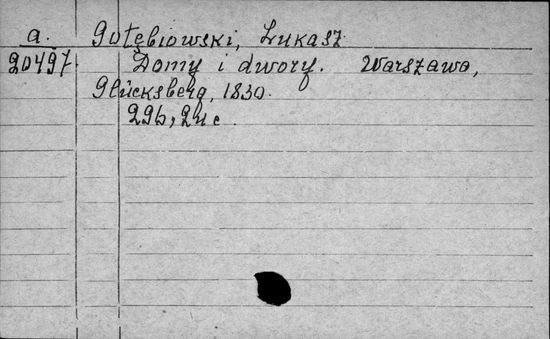 a. Gołębiowski, Łukasz.
20497. Domy i dwory. Warszawa,
Glücksberg, 1830.
29b, 24c.